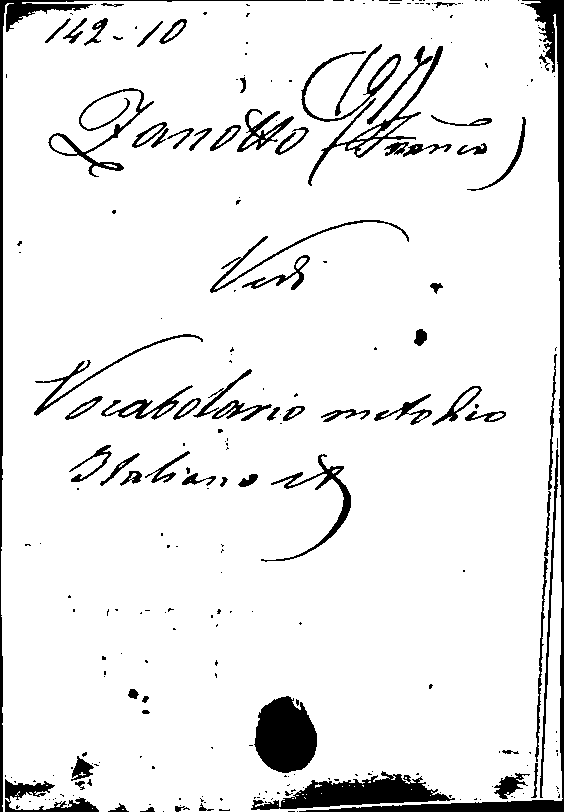 142-10
107
Zanotto (Franco)
Vedi
Vocabolario metodico
Italiano